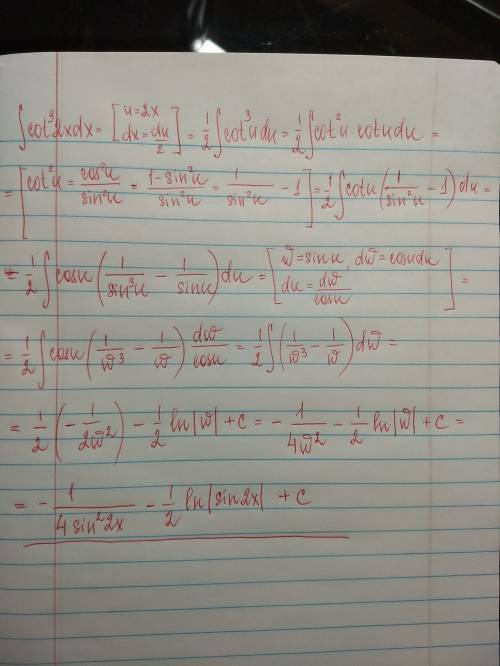 ∫cot³2xdx = [u=2x dx=du/2] = 1/2 ∫cot³u du = 1/2 ∫cot²u · cotu du =
= [cot²u = cos²u/sin²u = (1-sin²u)/sin²u = 1/sin²u - 1] = 1/2 ∫cotu (1/sin²u - 1) du =
= 1/2 ∫cosu (1/sin³u - 1/sinu) du = [w=sinu, dw=cosudu du=dw/cosu] =
= 1/2 ∫cosu (1/w³ - 1/w) dw/cosu = 1/2 ∫(1/w³ - 1/w) dw =
= 1/2 (-1/2w²) - 1/2 ln|w| + c = - 1/4w² - 1/2 ln|w| + c =
= - 1/4sin²2x - 1/2 ln|sin2x| + c